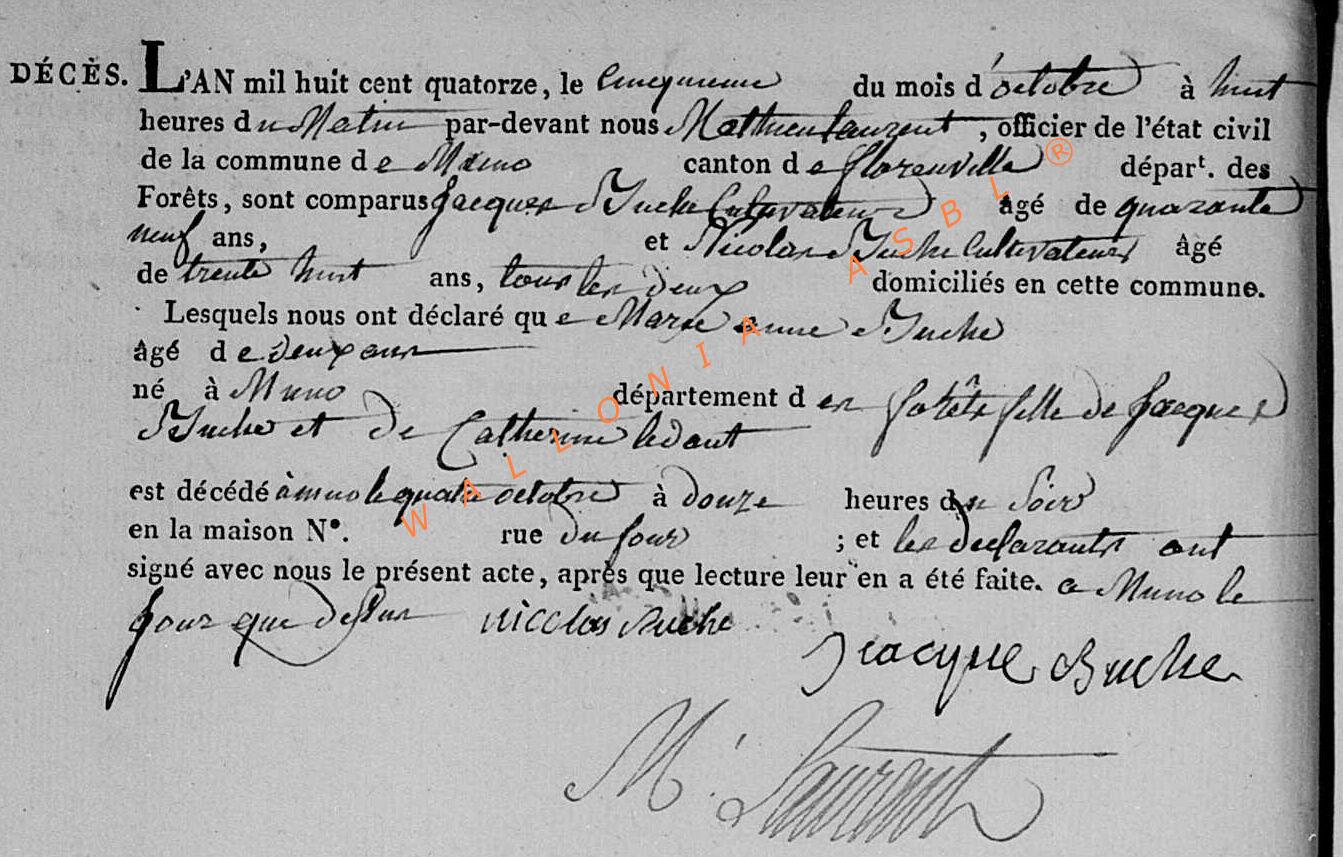 DÉCÈS. L'AN mil huit cent quatorze, le cinquieme du mois d'octobre à huit
heures du Matin par-devant nous Mathieu Laurent, officier de l'état civil
de la commune de Muno canton de florenville départ. des
Forêts, sont comparus Jacques Suche Cultivateur âgé de quarante
neuf ans, et Nicolas Suche Cultivateur âgé
de trente huit ans, tous les deux domiciliés en cette commune.
Lesquels nous ont déclaré que Marie anne Suche
âgé de deux ans
né à Muno département des forêts fille de Jacques
Suche et de Catherine ledant
est décédé à muno le quatre octobre à douze heures du Soir
en la maison N°. rue du four ; et les declarants ont
signé avec nous le présent acte, après que lecture leur en a été faite. a Muno le
jour que dessus nicolas suche
Jracque Suche
M. Laurent
WALLONIA ASBL ®